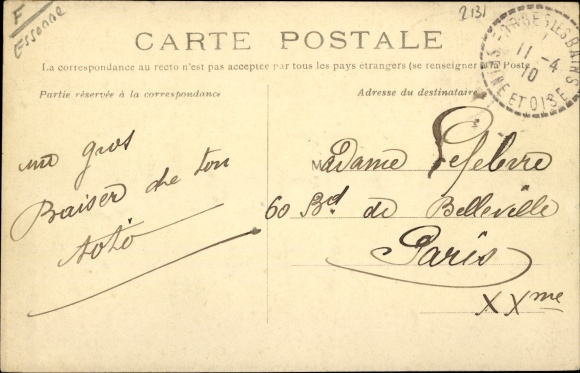 F
Essonne
2131
CARTE POSTALE
La correspondance au recto n'est pas acceptée par tous les pays étrangers (se renseigner à la Poste
Partie réservée à la correspondance
Adresse du destinataire
FORGES LES BAINS
11-4
10
SEINE ET OISE
un gros
Baiser de ton
toto
Madame Lefebvre
60 Bd de Belleville
Paris
XXme